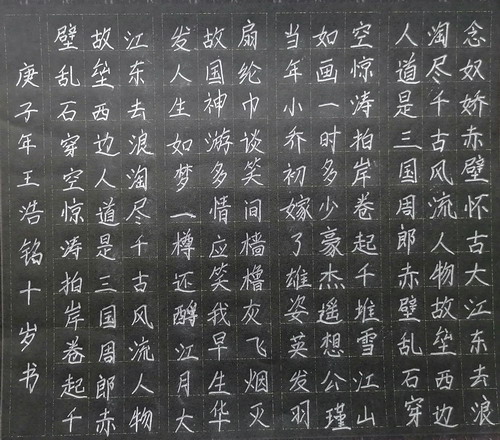 念奴娇赤壁怀古大江东去浪
淘尽千古风流人物故垒西边
人道是三国周郎赤壁乱石穿
空惊涛拍岸卷起千堆雪江山
如画一时多少豪杰遥想公瑾
当年小乔初嫁了雄姿英发羽
扇纶巾谈笑间樯橹灰飞烟灭
故国神游多情应笑我早生华
发人生如梦一樽还酹江月大
江东去浪淘尽千古风流人物
故垒西边人道是三国周郎赤
壁乱石穿空惊涛拍岸卷起千
庚子年王浩铭十岁书